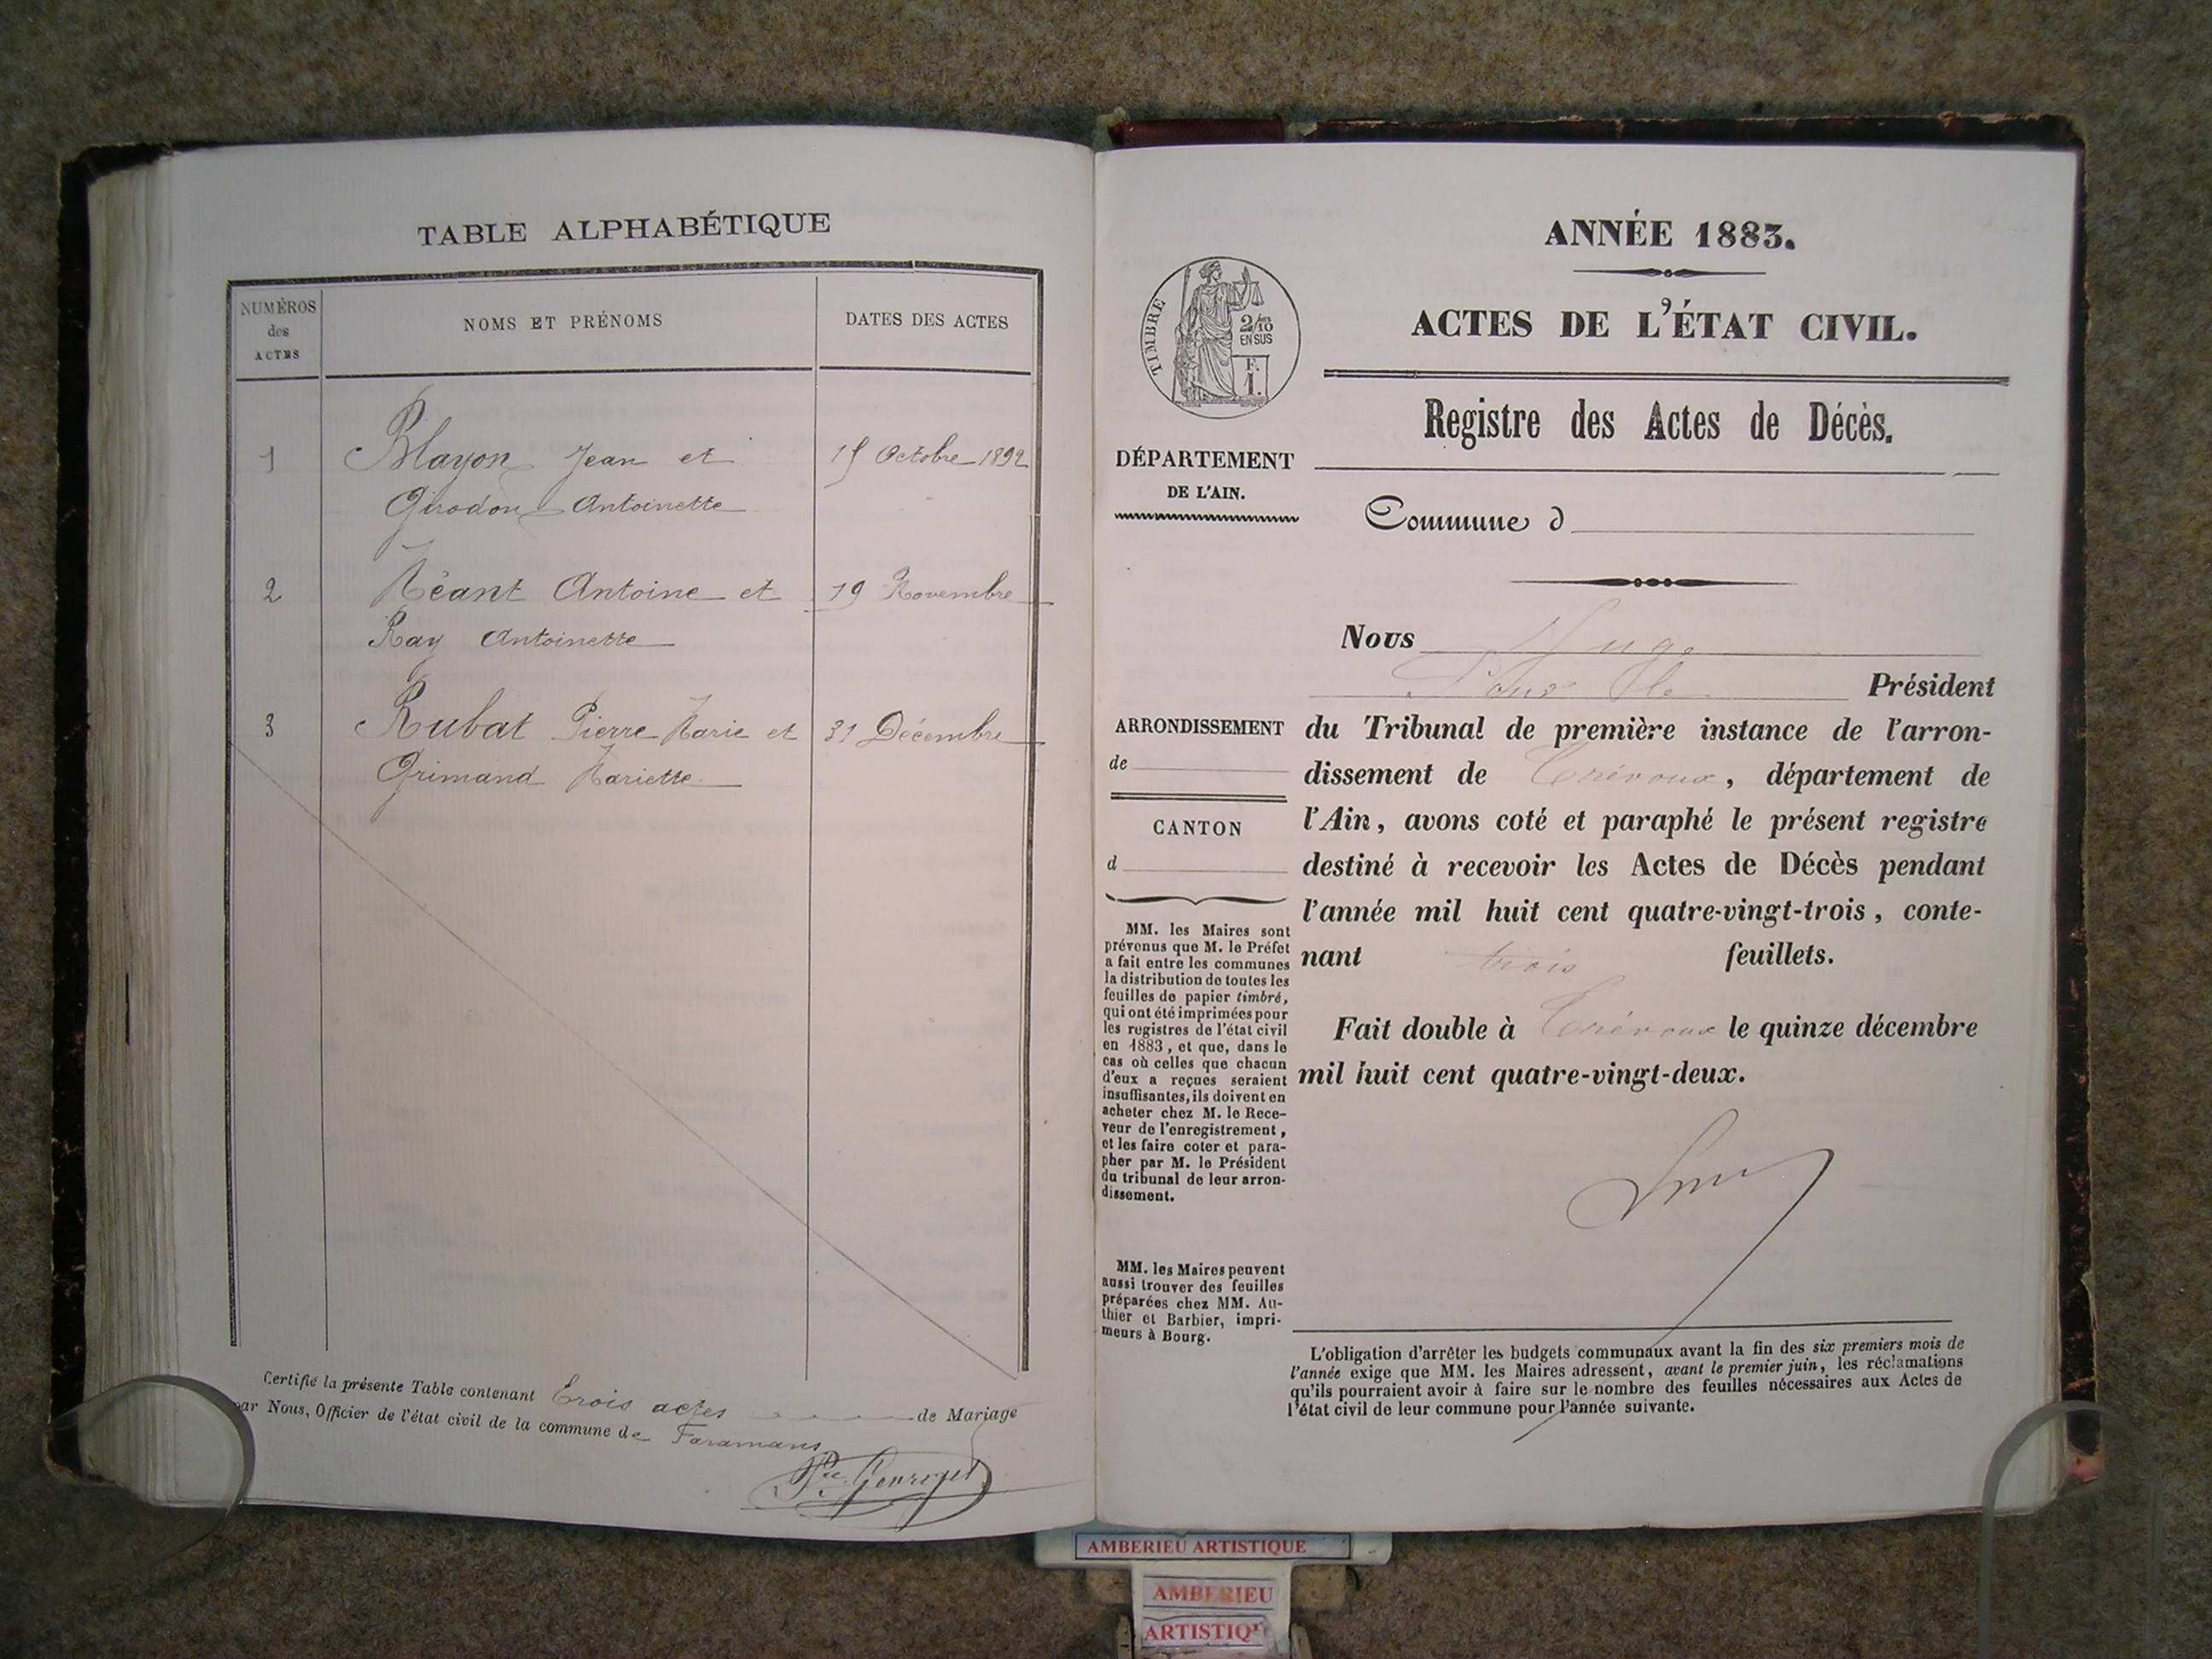 TABLE ALPHABÉTIQUE
NUMÉROS
des
ACTES
NOMS ET PRÉNOMS
DATES DES ACTES
1 Blayon Jean et 15 Octobre 1892
Girodon Antoinette
2 Néant Antoine et 19 Novembre
Ray Antoinette
3 Rubat Pierre Marie et 31 Décembre
Grimand Mariette
Certifié la présente Table contenant Trois actes de Mariage
par Nous, Officier de l'état civil de la commune de Faramans
ANNÉE 1883.
TIMBRE
2/10
EN SUS
F.
1.
ACTES DE L'ÉTAT CIVIL.
Registre des Actes de Décès.
DÉPARTEMENT
DE L'AIN.
Commune d
Nous Juge
Pour le Président
ARRONDISSEMENT
de
CANTON
d
du Tribunal de première instance de l'arron-
dissement de Trévoux, département de
l'Ain, avons coté et paraphé le présent registre
destiné à recevoir les Actes de Décès pendant
l'année mil huit cent quatre-vingt-trois, conte-
nant trois feuillets.
Fait double à Trévoux le quinze décembre
mil huit cent quatre-vingt-deux.
MM. les Maires sont
prévenus que M. le Préfet
a fait entre les communes
la distribution de toutes les
feuilles de papier timbré,
qui ont été imprimées pour
les registres de l'état civil
en 1883, et que, dans le
cas où celles que chacun
d'eux a reçues seraient
insuffisantes, ils doivent en
acheter chez M. le Rece-
veur de l'enregistrement,
et les faire coter et para-
pher par M. le Président
du tribunal de leur arron-
dissement.
MM. les Maires peuvent
aussi trouver des feuilles
préparées chez MM. Au-
thier et Barbier, impri-
meurs à Bourg.
L'obligation d'arrêter les budgets communaux avant la fin des six premiers mois de
l'année exige que MM. les Maires adressent, avant le premier juin, les réclamations
qu'ils pourraient avoir à faire sur le nombre des feuilles nécessaires aux Actes de
l'état civil de leur commune pour l'année suivante.
AMBERIEU ARTISTIQUE
AMBERIEU
ARTISTIQU